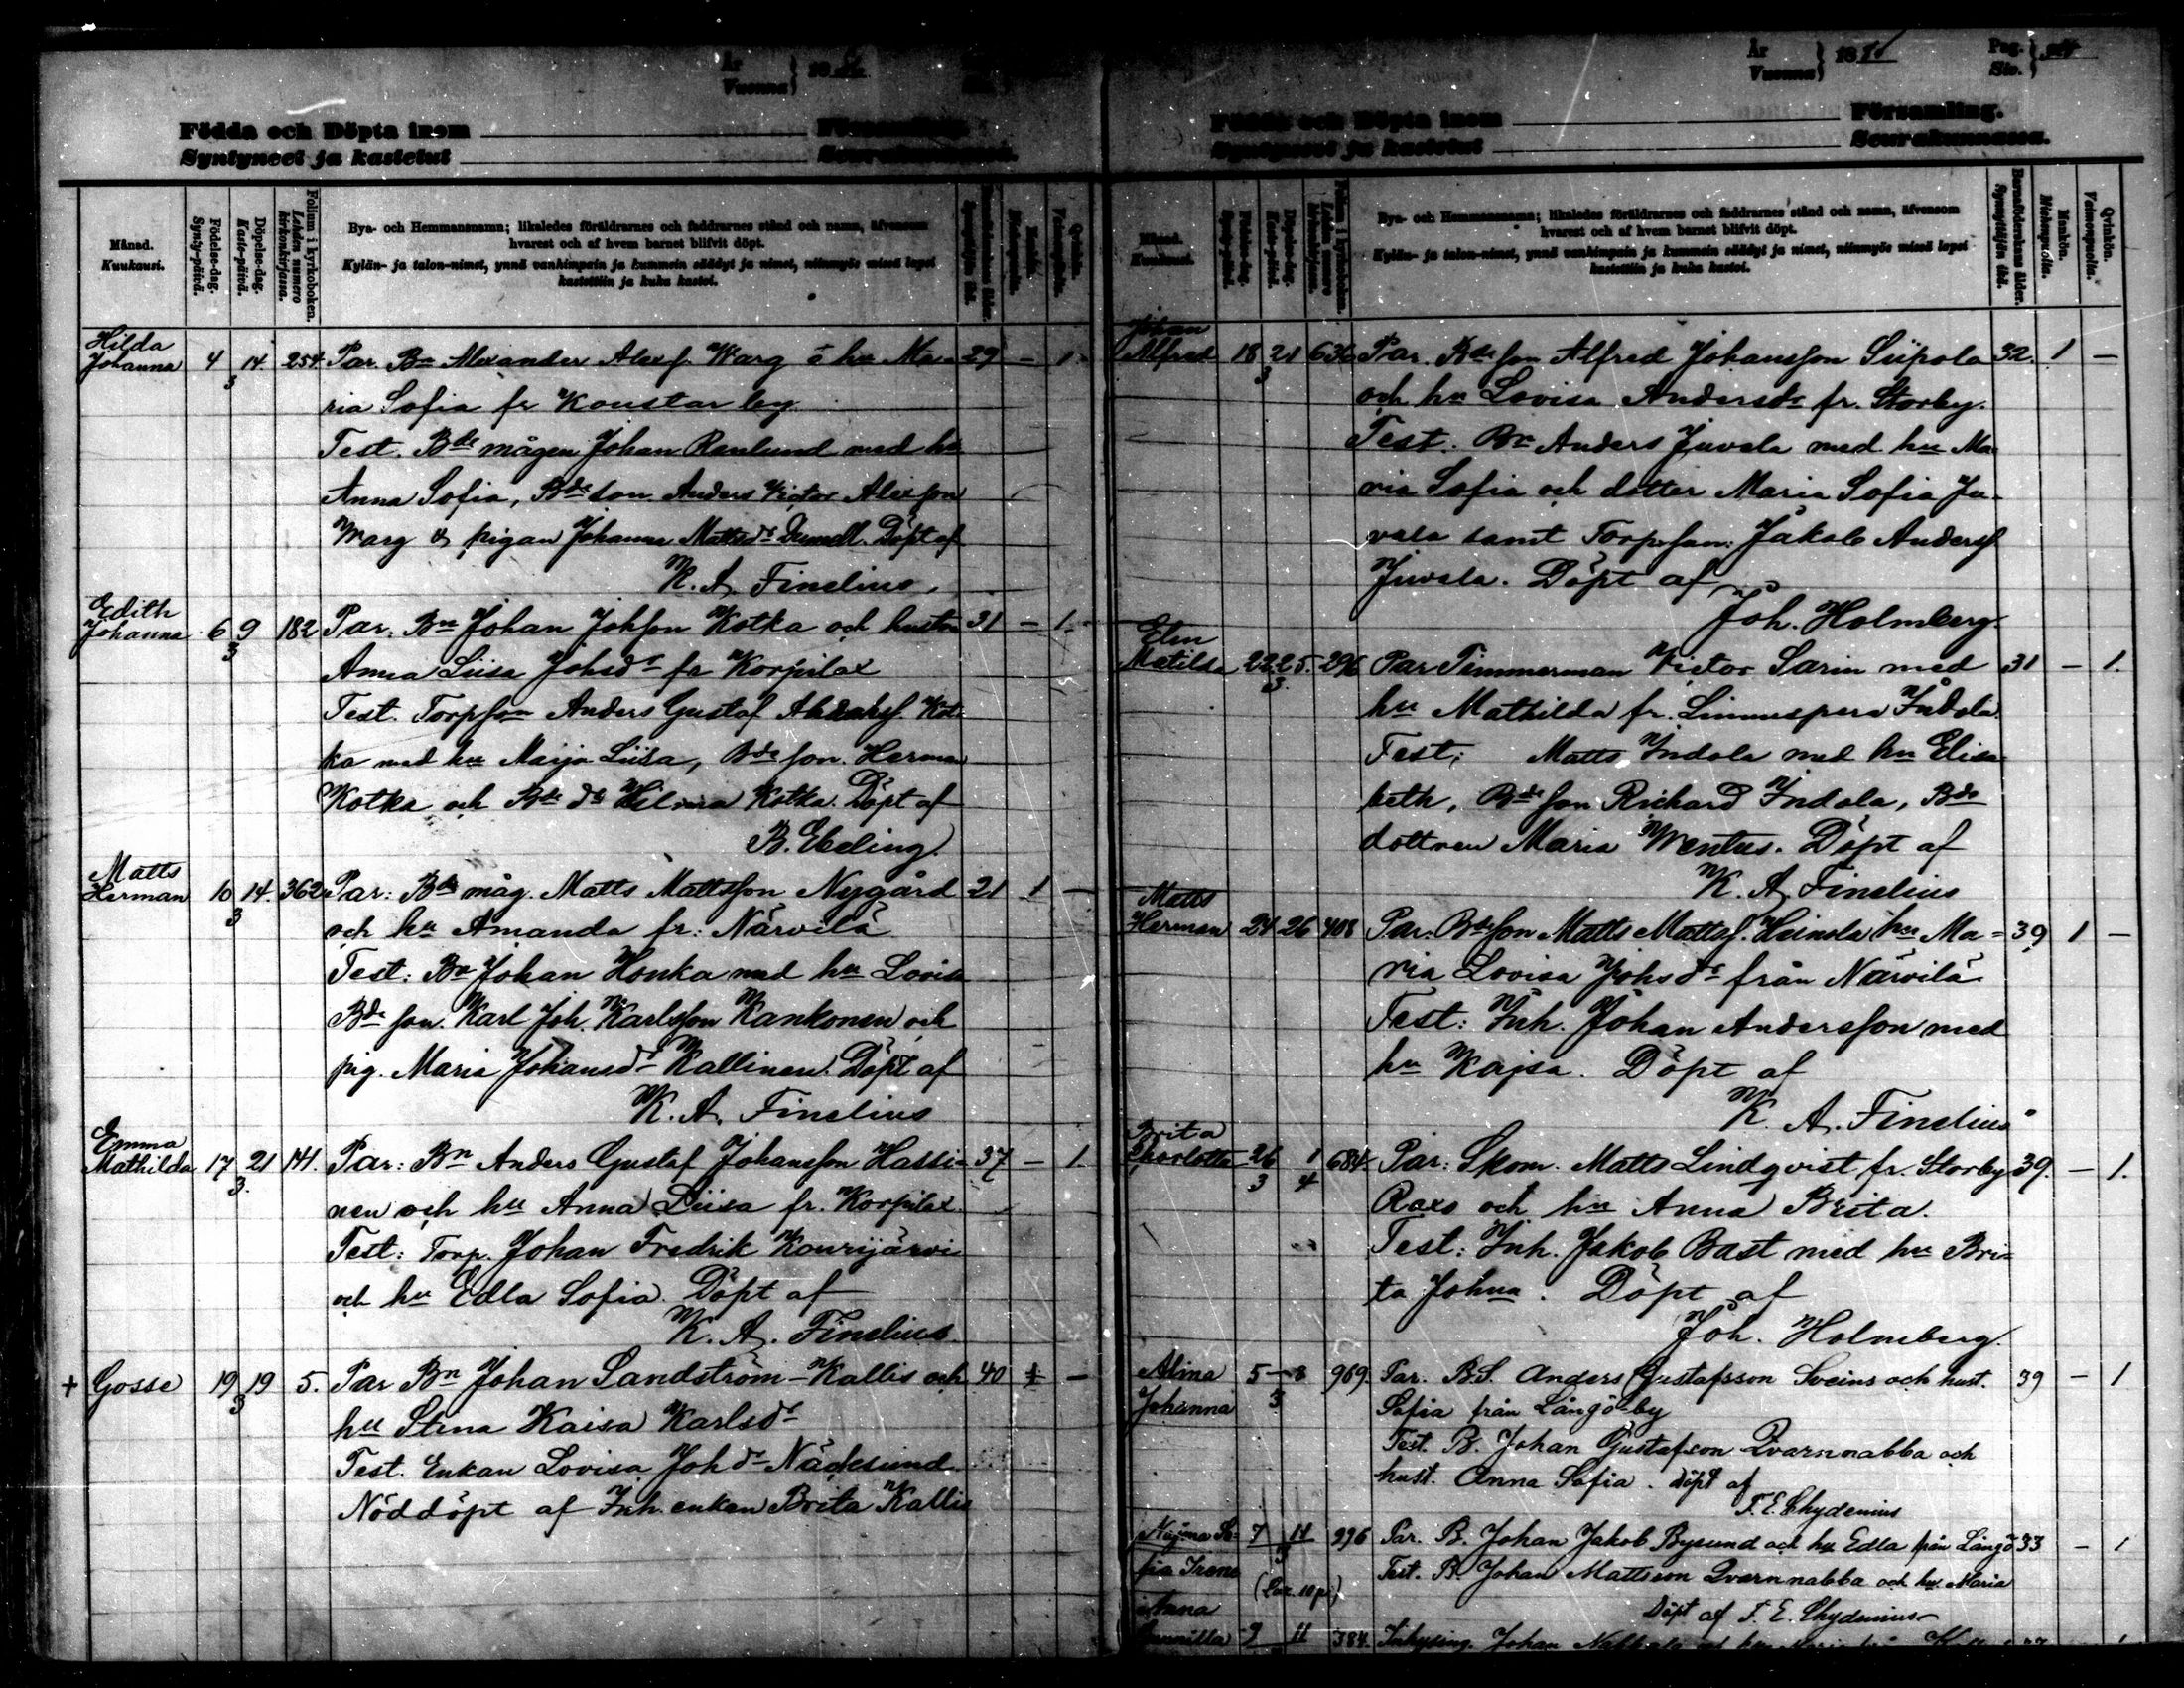 År
Vuonna
Födda och Döpta inom
Syntyneet ja kastetut
Månad.
Kuukausi.
Födelse-dag.
Synty-päivä.
Döpelse-dag.
Kaste-päivä.
Folium i kyrkoboken.
Lehden numero
kirkonkirjassa.
Bya- och Hemmansnamn; likaledes föräldrarnes och faddrarnes stånd och namn, äfvensom
hvarest och af hvem barnet blifvit döpt.
Kylän- ja talon-nimet, ynnä vanhimpain ja kummein säädyt ja nimet, niinmyös missä lapsi
kastettiin ja kuka kastoi.
Hilda
Johanna 4 14. 254. Par. Bn Alexander Alexs. Warg o hu Ma- 29 – 1.
3
ria Sofia fr Koustar by.
Test. Bde mågen Johan Renlund med hu
Anna Sofia, Bde son Anders Victor Alexson
Warg & pigan Johanna Mattsdr Döpt af
K. A. Finelius.
Edith
Johanna 6 9 182 Par: Bn Johan Johson Kotka och hustru 31 – 1.
3
Anna Liisa Johsdr fr Korpilax
Test. Torpson Anders Gustaf Kot-
ka med hu Maija Liisa, Bde son Herman
Kotka och Bde dr Hilma Kotka. Döpt af
B. Ebeling.
Matts
Herman 10 14. 362 Par: Bde måg. Matts Mattsson Nygård 21 1 –
3
och hu Amanda fr: Närvilä
Test: Bn Johan Honka med hu Lovisa
Bde son. Karl Joh. Karlsson Kankonen och
pig. Maria Johansdr Kallinen. Döpt af
K. A. Finelius
Emma
Mathilda 17 21 141. Par: Bn Anders Gustaf Johansson Hassi- 37 – 1.
3.
nen och hu Anna Liisa fr. Korpilax.
Test: Torp. Johan Fredrik Kourijärvi
och hu Edla Sofia. Döpt af
K. A. Finelius
+ Gosse 19 19 5. Par Bn Johan Sandström-Kallis och 40 1 –
3
hu Stina Kaisa Karlsdr
Test. Enkan Lovisa Johdr Näcksund
Nöddöpt af Inh. enkan Brita Kallis
År
Vuonna 18
Pag.
Siv.
Födda och Döpta inom Församling.
Syntyneet ja kastetut Seurakunnassa.
Bya- och Hemmansnamn; likaledes föräldrarnes och faddrarnes stånd och namn, äfvensom
hvarest och af hvem barnet blifvit döpt.
Kylän- ja talon-nimet, ynnä vanhimpain ja kummein säädyt ja nimet, niinmyös missä lapsi
kastettiin ja kuka kastoi.
Barnaföderskans ålder.
Synnyttäjän ikä.
Mankön.
Miehenpuolta.
Qvinkön.
Vaimonpuolta.
Johan
Alfred 18 21 636 Par. Bde son Alfred Johansson Siipola 32. 1 –
3
och hu Lovisa Andersdr fr. Storby.
Test. Bn Anders Juvala med hu Ma
ria Sofia och dotter Maria Sofia Ju-
vala samt Torpson: Jakob Anders
Juvala. Döpt af
Joh. Holmberg.
Elen
Matilda 22 25. 296 Par Timmerman Victor Sarin med 31 – 1.
3.
hu Mathilda fr. Linnuspera Indola
Test: Matts Indola med hu Elisa-
beth, Bde son Richard Indola, Bde
dottren Maria Wentus. Döpt af
K. A. Finelius
Matts
Herman 24 26 408 Par. Bde son Matts Matts. Heinola hu Ma- 39 1 –
ria Lovisa Johsdr från Närvilä
Test: Inh. Johan Andersson med
hu Kajsa. Döpt af
K. A. Finelius
Brita
Charlotta 26 1 684 Par: Skom. Matts Lindqvist fr. Storby 39. – 1.
3 4
och hu Anna Brita.
Test: Inh. Jakob Bast med hu Bri-
ta Johna. Döpt af
Joh. Holmberg.
Alina 5 – 8 969. Par. B.S. Anders Gustafsson Sveins och hust. 39 – 1
Johanna 3
Sofia från Långö-by
Test. B. Johan Gustafsson Qvarnnabba och
hust. Anna Sofia. döpt af
F. E. Chydenius
Naima So- 7 11 996 Par. B. Johan Jakob Bysund och hu Edla från Långö 33 – 1
fia Irene
Test. B. Johan Mattsson Qvarnnabba och hu. Maria
Döpt af F. E. Chydenius
Anna
9 11 384. Inhysing. Johan